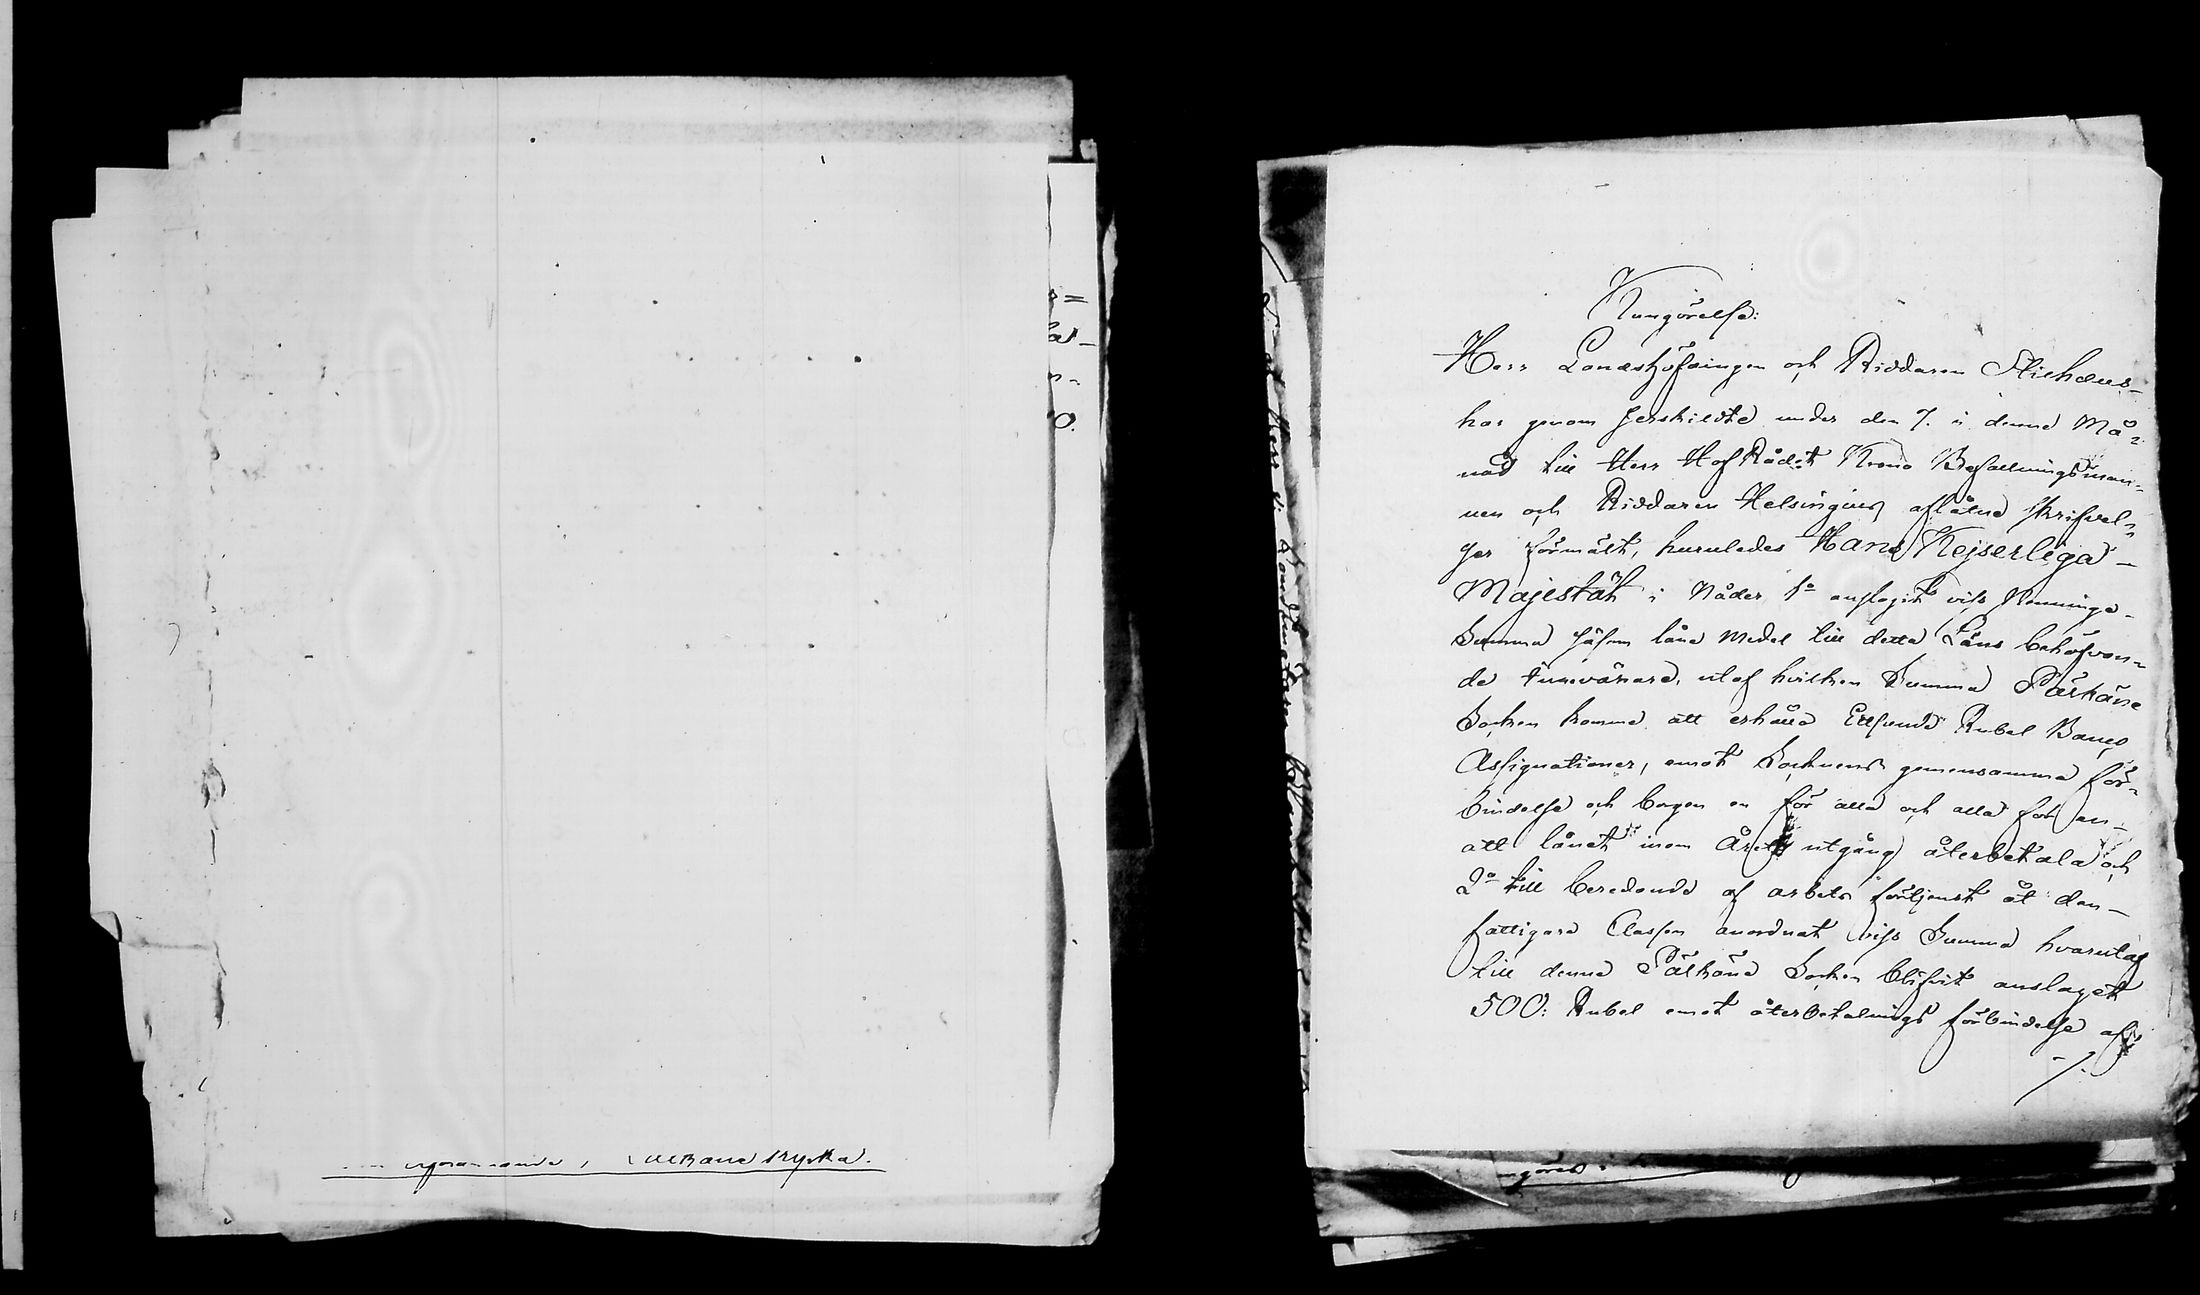 Kungörelse:
Herr Landshöfdingen och Riddaren Stichæus
har genom serskildte under den 7. i denna Må=
nad till Herr HofRådet Krono Befallningsman=
nen och Riddaren Helsingius aflåtne skrifvel=
ser förmält, huruledes Hans Kejserliga
Majestät i Nåder 1o anslagit viss Penninge
Summa såsom låne Medel till detta Läns behöfvan=
de innevånare, utaf hvilken Summa Pälkäne
Socken komme att erhålla Ettusende Rubel Banco
Assignationer, emot Socknens gemensamma för=
bindelse och borgen en för alla och alla för en
att lånet inom Årets utgång återbetala och
2o till beredande af arbets förtjenst åt den
fattigare Classen anordnat viss Summa hvarutaf
till denna Pälkäne Socken blifvit anslaget
500: Rubel emot återbetalnings förbindelse af